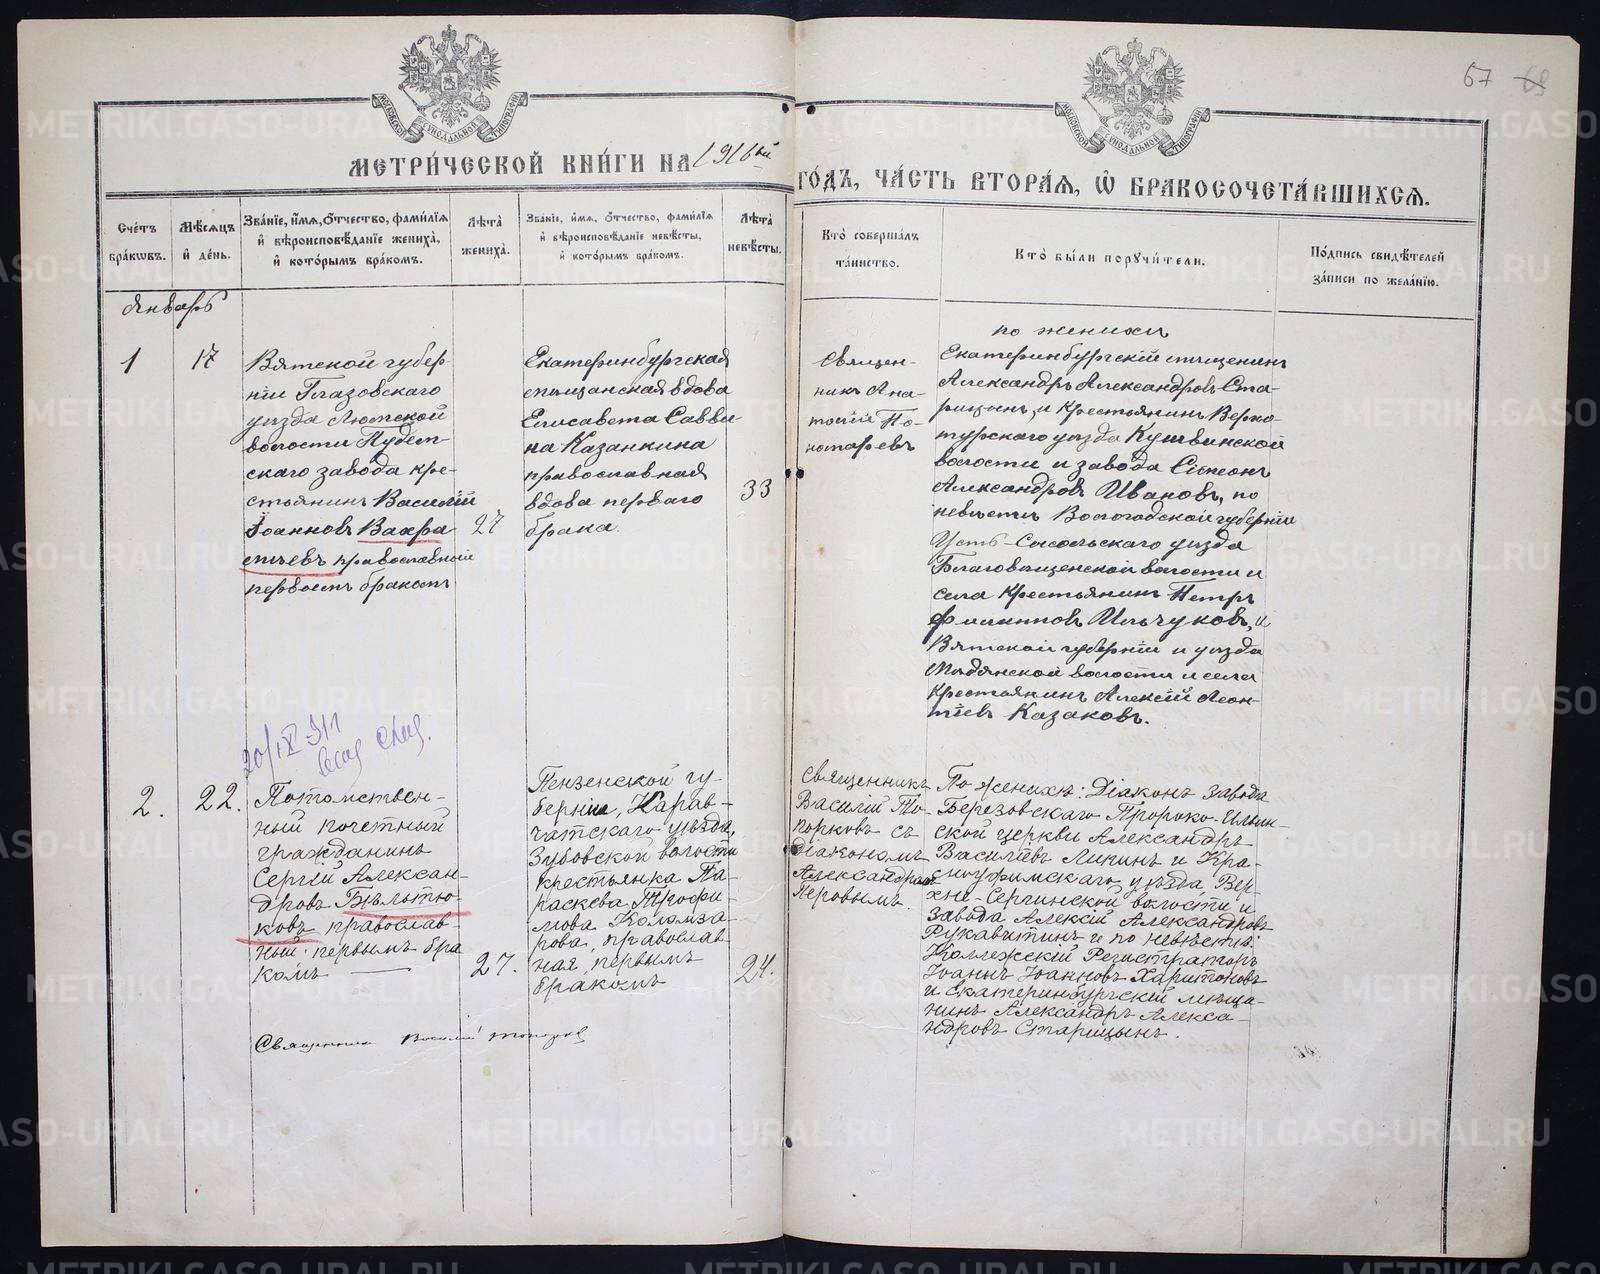 67 69
МОСКОВСКОЙ СУНОДАЛЬНОЙ ТИПОГРАФІИ
МОСКОВСКОЙ СУНОДАЛЬНОЙ ТИПОГРАФІИ
МЕТРИ́ЧЕСКОЙ КНИ́ГИ НА 1916ый
ГО́ДЪ, ЧА́СТЬ ВТОРА́Я, Ѡ БРАКОСОЧЕТА́ВШИХСЯ.
Сче́тъ бра́кѡвъ.
Мѣ́сяцъ и де́нь.
Зва́ніе, и́мя, ѻ́тчество, фами́лїя
и вѣроисповѣ́даніе жениха̀,
и кото́рымъ бра́комъ.
Лѣ́та жениха̀.
Зва́ніе, и́мя, ѻ́тчество, фами́лїя
и вѣроисповѣ́даніе невѣ́сты,
и кото́рымъ бра́комъ.
Лѣ́та невѣ́сты.
Кто̀ соверша́лъ
та́инство.
Кто̀ бы́ли поручи́тели.
По́дпись свидѣ́телей
за́писи по жела́нію.
Январь
1
17
Вятской губер-
ніи Глазовскаго
уѣзда Лютской
волости Пудем-
скаго завода кре-
стьянинъ Василій
Іоанновъ Ваара
православный
первымъ бракомъ
27
Екатеринбургская
мѣщанская вдова
Елисавета Савви-
на Казанкина
православная
вдова перваго
брака.
33
Священ-
никъ Ана-
толій По-
номаревъ
по женихѣ
Екатеринбургскій мѣщанинъ
Александръ Александровъ Ста-
рицынъ, и крестьянинъ Верхо-
турскаго уѣзда Кушвинской
волости и завода Сімеонъ
Александровъ Ивановъ, по
невѣстѣ Вологодской губерніи
Усть-Сысольскаго уѣзда
Благовѣщенской волости и
села крестьянинъ Петръ
Филипповъ Ильчуковъ, и
Вятской губерніи и уѣзда
Мѣдянской волости и села
крестьянинъ Алексій Леон-
тіевъ Казаковъ.
20/IX 311
2.
22.
Потомствен-
ный почетный
гражданинъ
Сергій Алексан-
дровъ Бѣльтю-
ковъ православ-
ный первымъ бра
комъ
27.
Пензенской гу-
берніи, Наров-
чатскаго уѣзда,
Зубовской волости
крестьянка Па-
раскева Трофи-
мова Коломза-
рова, православ-
ная, первымъ
бракомъ
24.
Священникъ
Василій То-
порковъ съ
діакономъ
Александромъ
Перовымъ.
По женихѣ: Діаконъ завода
Березовскаго Пророко-Ильин-
ской церкви Александръ
Василіевъ Липинъ и Кра-
сноуфимскаго уѣзда Вер-
хне-Сергинской волости и
завода Алексій Александровъ
Рукавитинъ и по невѣстѣ:
Коллежскій Регистраторъ
Іоаннъ Іоанновъ Харитоновъ
и Екатеринбургскій мѣща-
нинъ Александръ Алекса-
ндровъ Старицынъ.
Священникъ Василій Топорков
METRIKI.GASO-URAL.RU